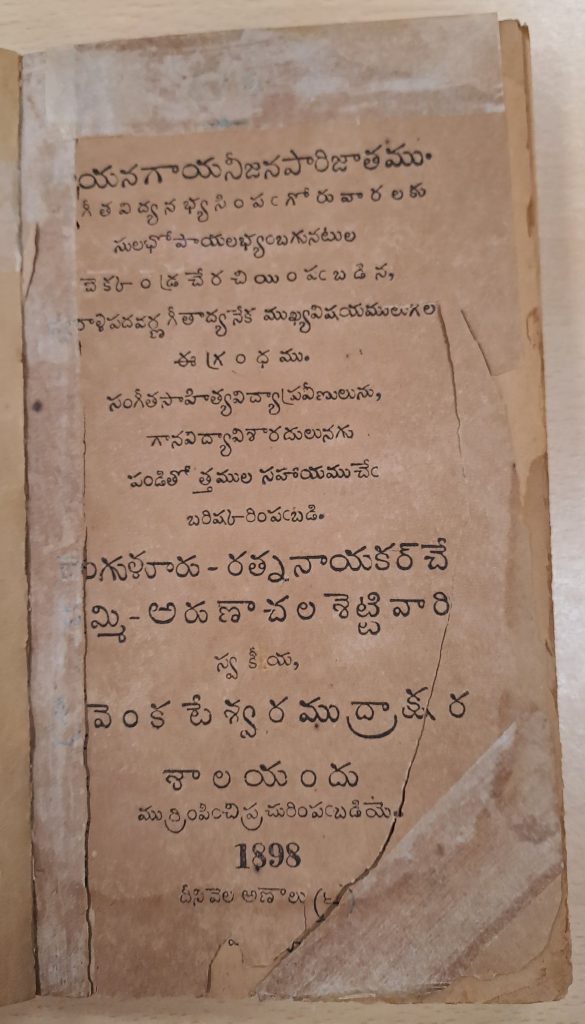 యనగాయనీజనపారిజాతము.
గీతవిద్యనభ్యసింపఁగోరువారలకు
సులభోపాయలభ్యంబగునటుల
పెక్కండ్రచేరచియింపఁబడిన,
పదవర్ణగీతాద్యనేక ముఖ్యవిషయములుగల
ఈ గ్రంధము.
సంగీతసాహిత్యవిద్యాప్రవీణులును,
గానవిద్యావిశారదులునగు
పండితోత్తముల సహాయముచేఁ
బరిష్కరింపఁబడి.
గుళూరు - రత్ననాయకర్ చే
మ్మి - అరుణాచల శెట్టివారి
స్వకీయ,
వెంకటేశ్వరముద్రాక్షర
శాలయందు
ముద్రింపించిప్రచురింపఁబడియె.
1898
దీనివెల అణాలు